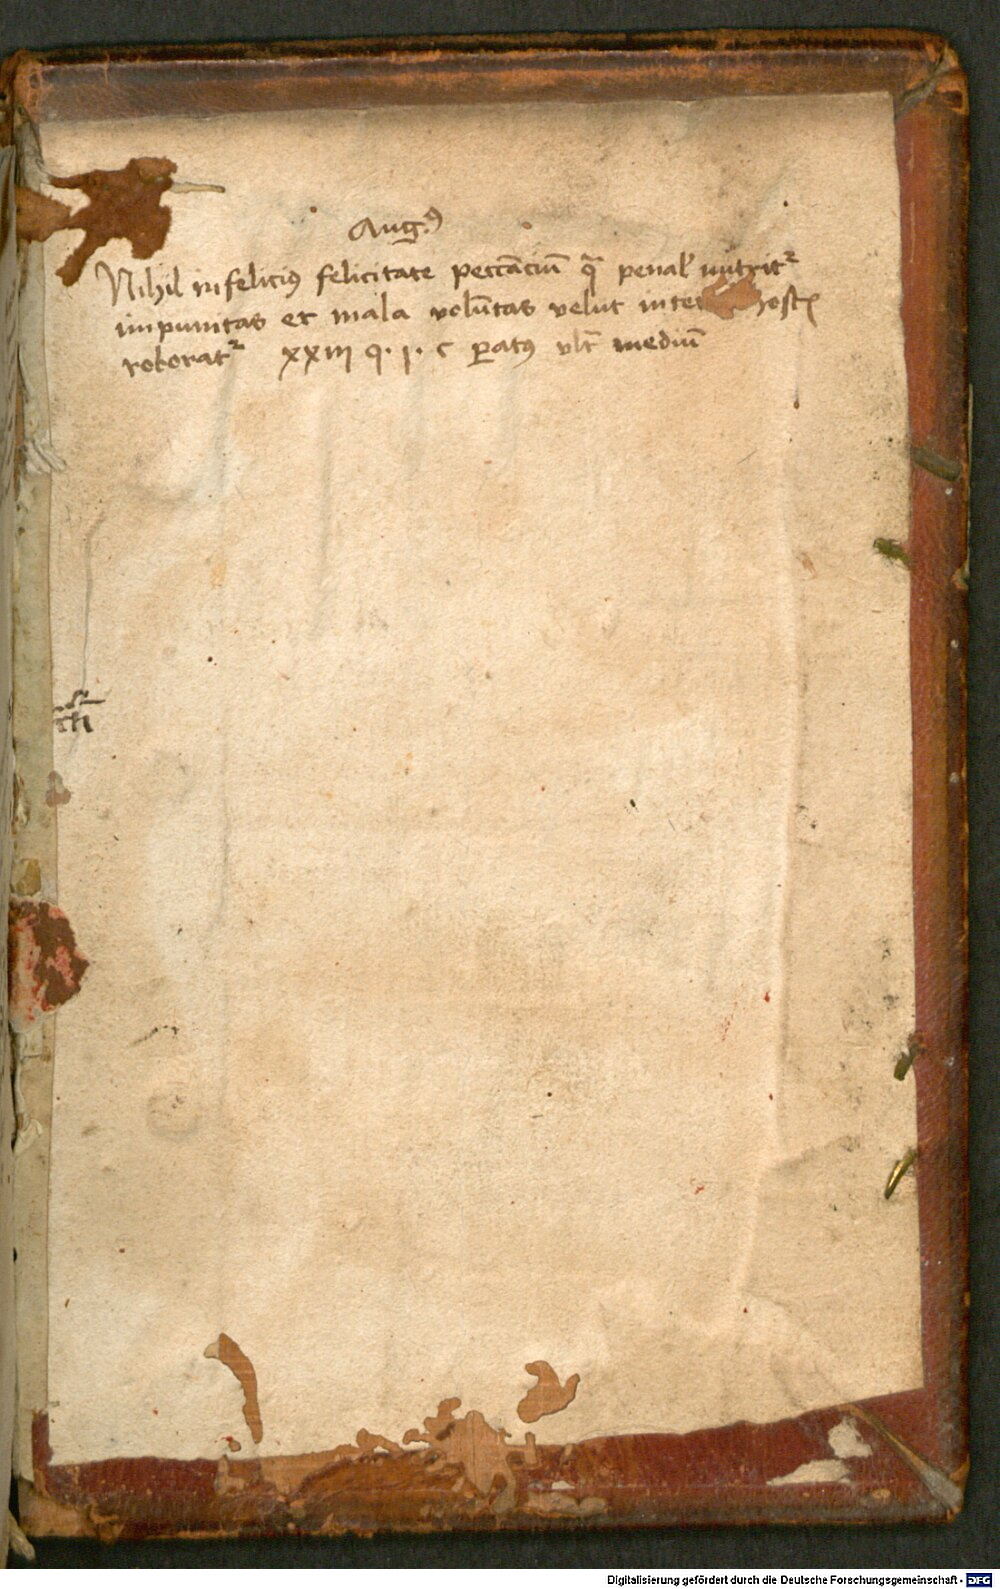 Aug.ꝰ
Nihil infeliciꝰ felicitate peccāciū q̄ penal' nutrit᷑
impunitas et mala volūtas velut inte hostꝭ
roborat᷑ xxiii q. i. c ꝑatꝰ vlt̄ mediū
Digitalisierung gefördert durch die Deutsche Forschungsgemeinschaft - DFG